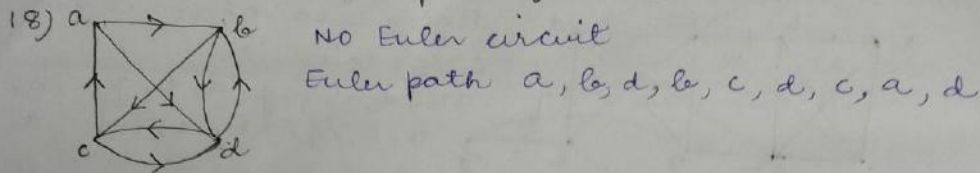 18) a b No Euler circuit
Euler path a, b, d, b, c, d, c, a, d
c d